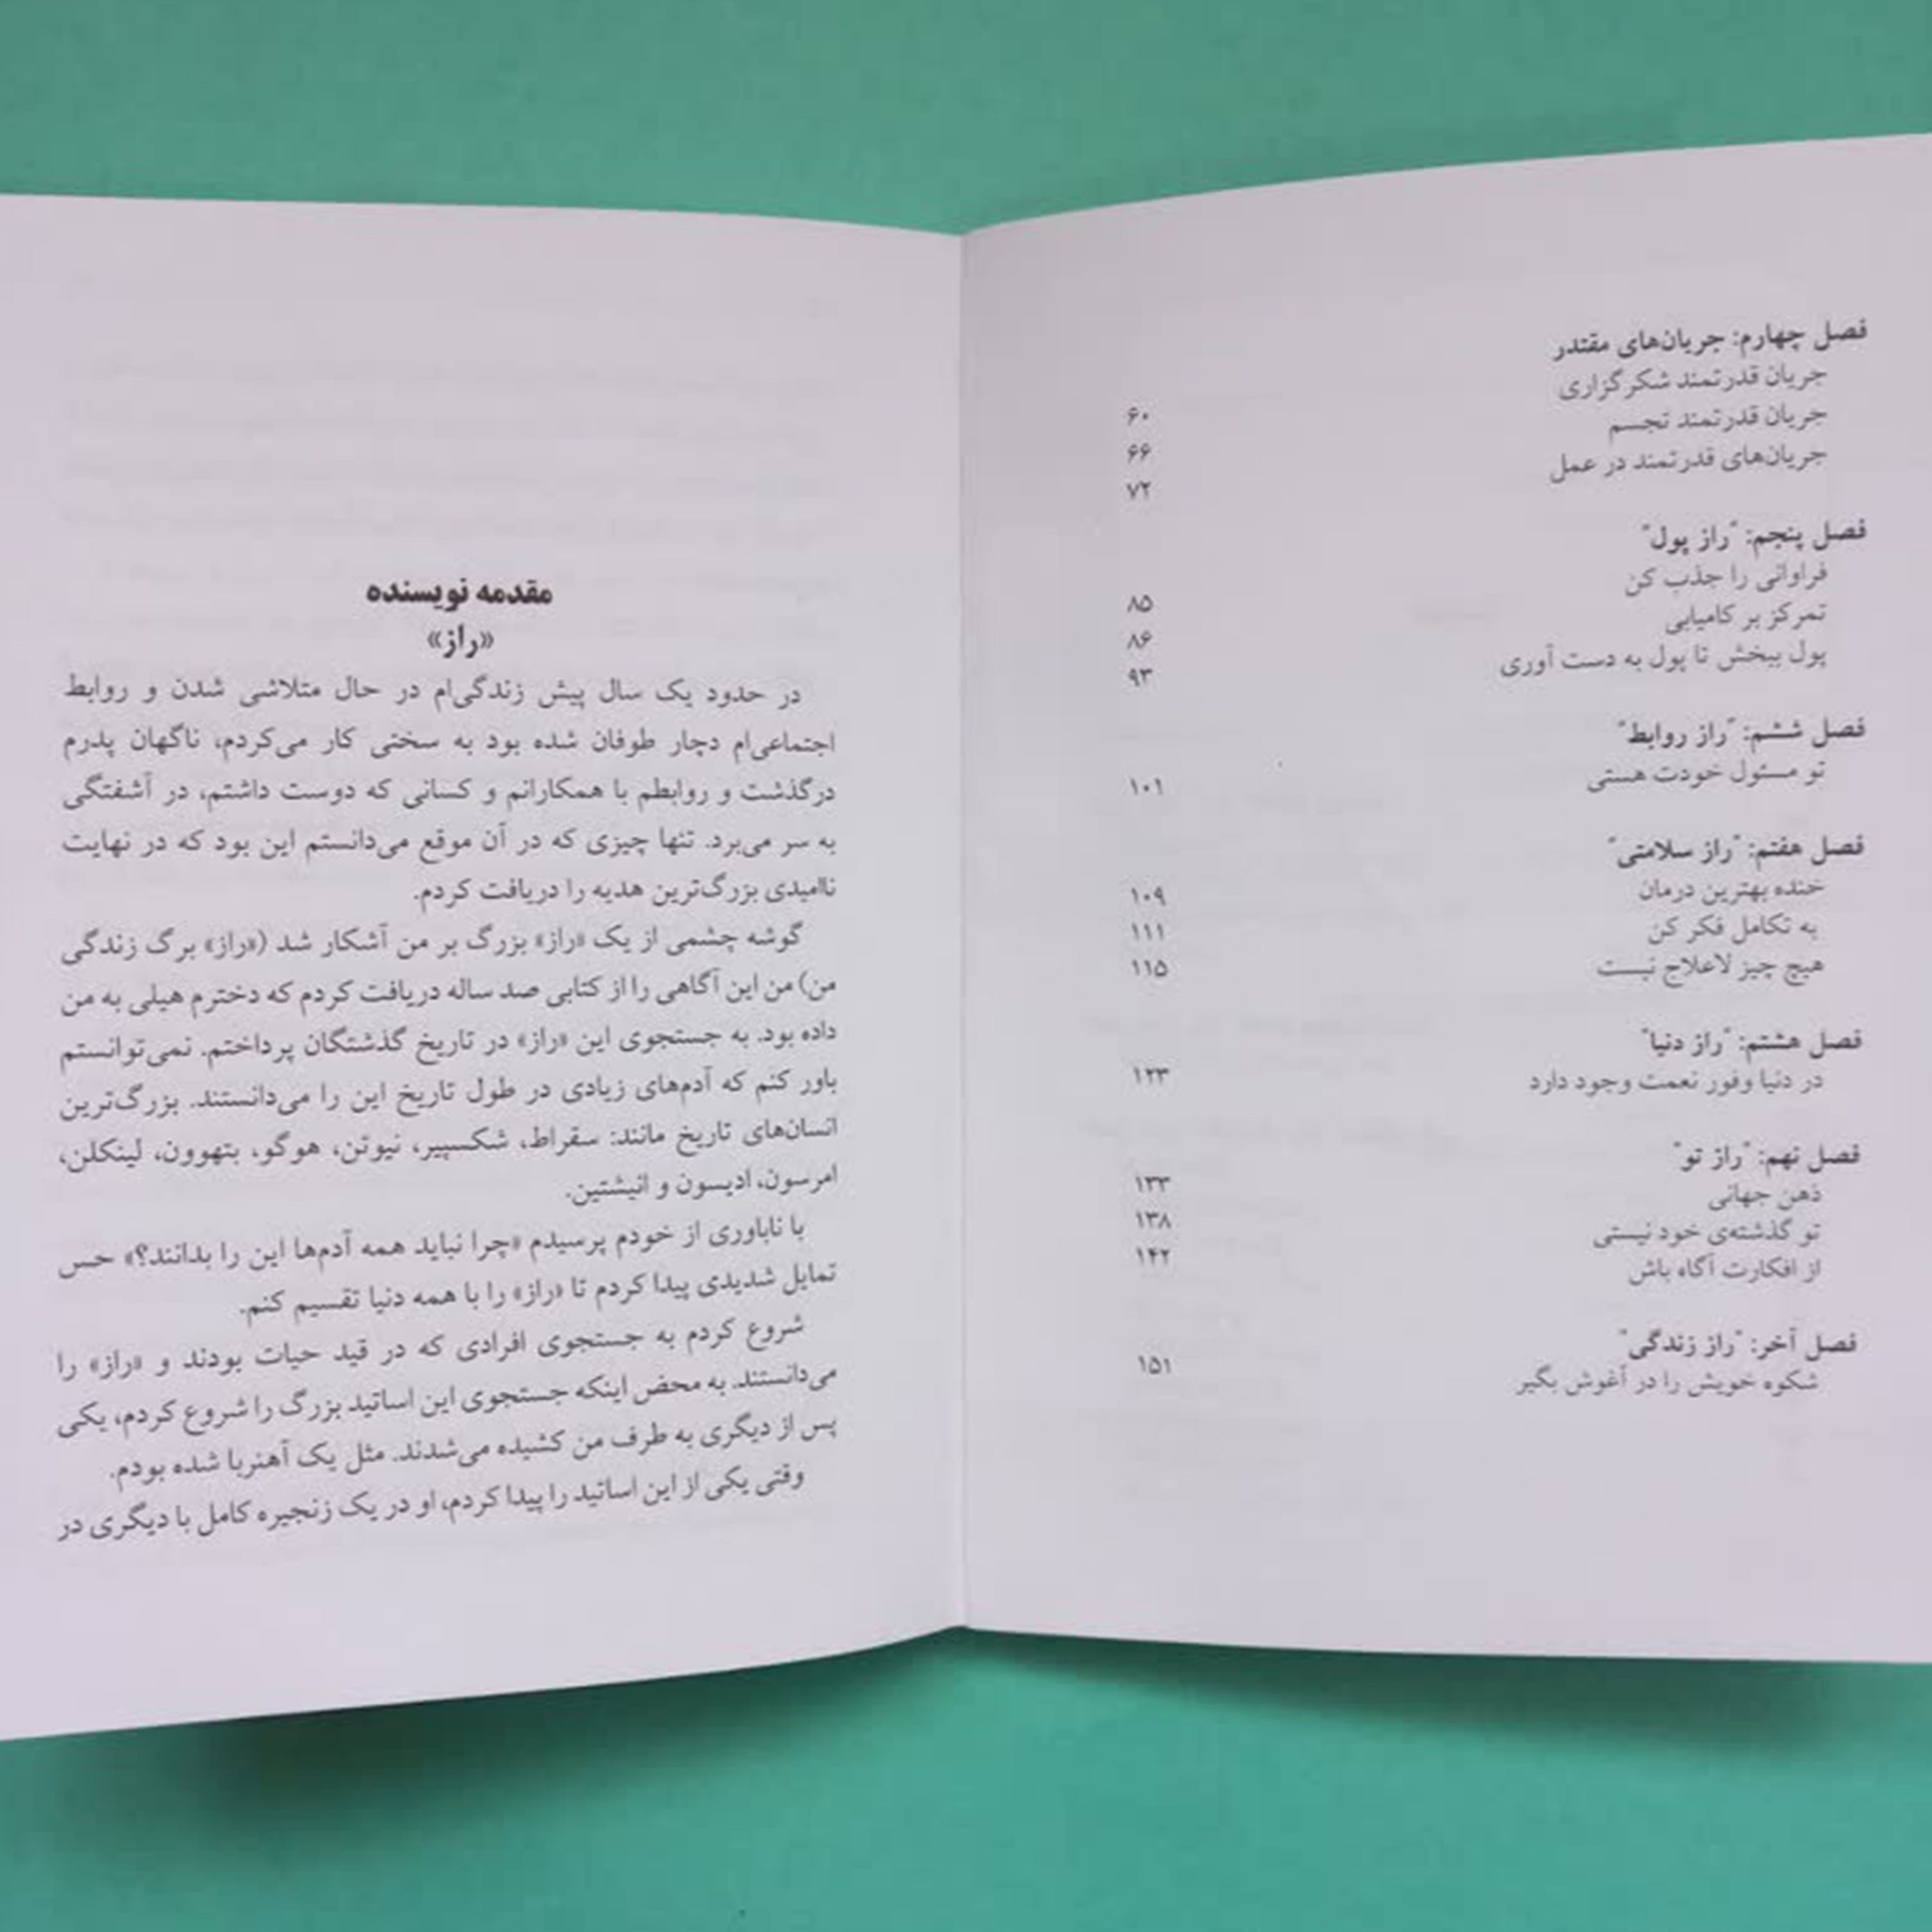 فصل چهارم: جریان‌های مقتدر
جریان قدرتمند شکرگزاری ۶۰
جریان قدرتمند تجسم ۶۶
جریان‌های قدرتمند در عمل ۷۲
فصل پنجم: "راز پول"
فراوانی را جذب کن ۸۵
تمرکز بر کامیابی ۸۶
پول ببخش تا پول به دست آوری ۹۳
فصل ششم: "راز روابط"
تو مسئول خودت هستی ۱۰۱
فصل هفتم: "راز سلامتی"
خنده بهترین درمان ۱۰۹
به تکامل فکر کن ۱۱۱
هیچ چیز لاعلاج نیست ۱۱۵
فصل هشتم: "راز دنیا"
در دنیا وفور نعمت وجود دارد ۱۲۳
فصل نهم: "راز تو"
ذهن جهانی ۱۳۳
تو گذشته‌ی خود نیستی ۱۳۸
از افکارت آگاه باش ۱۴۲
فصل آخر: "راز زندگی"
شکوه خویش را در آغوش بگیر ۱۵۱
مقدمه نویسنده
«راز»
در حدود یک سال پیش زندگی‌ام در حال متلاشی شدن و روابط
اجتماعی‌ام دچار طوفان شده بود به سختی کار می‌کردم، ناگهان پدرم
درگذشت و روابطم با همکارانم و کسانی که دوست داشتم، در آشفتگی
به سر می‌برد. تنها چیزی که در آن موقع می‌دانستم این بود که در نهایت
ناامیدی بزرگ‌ترین هدیه را دریافت کردم.
گوشه چشمی از یک «راز» بزرگ بر من آشکار شد («راز» برگ زندگی
من) من این آگاهی را از کتابی صد ساله دریافت کردم که دخترم هیلی به من
داده بود. به جستجوی این «راز» در تاریخ گذشتگان پرداختم. نمی‌توانستم
باور کنم که آدم‌های زیادی در طول تاریخ این را می‌دانستند. بزرگ‌ترین
انسان‌های تاریخ مانند: سقراط، شکسپیر، نیوتن، هوگو، بتهوون، لینکلن،
امرسون، ادیسون و انیشتین.
با ناباوری از خودم پرسیدم «چرا نباید همه آدم‌ها این را بدانند؟» حس
تمایل شدیدی پیدا کردم تا «راز» را با همه دنیا تقسیم کنم.
شروع کردم به جستجوی افرادی که در قید حیات بودند و «راز» را
می‌دانستند. به محض اینکه جستجوی این اساتید بزرگ را شروع کردم، یکی
پس از دیگری به طرف من کشیده می‌شدند. مثل یک آهنربا شده بودم.
وقتی یکی از این اساتید را پیدا کردم، او در یک زنجیره کامل با دیگری در